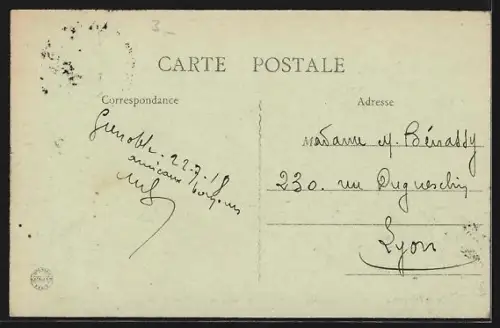 3
CARTE POSTALE
Correspondance
Adresse
Grenoble. 22-7-18
Madame M. Bénassy
230. rue Duguesclin
Lyon